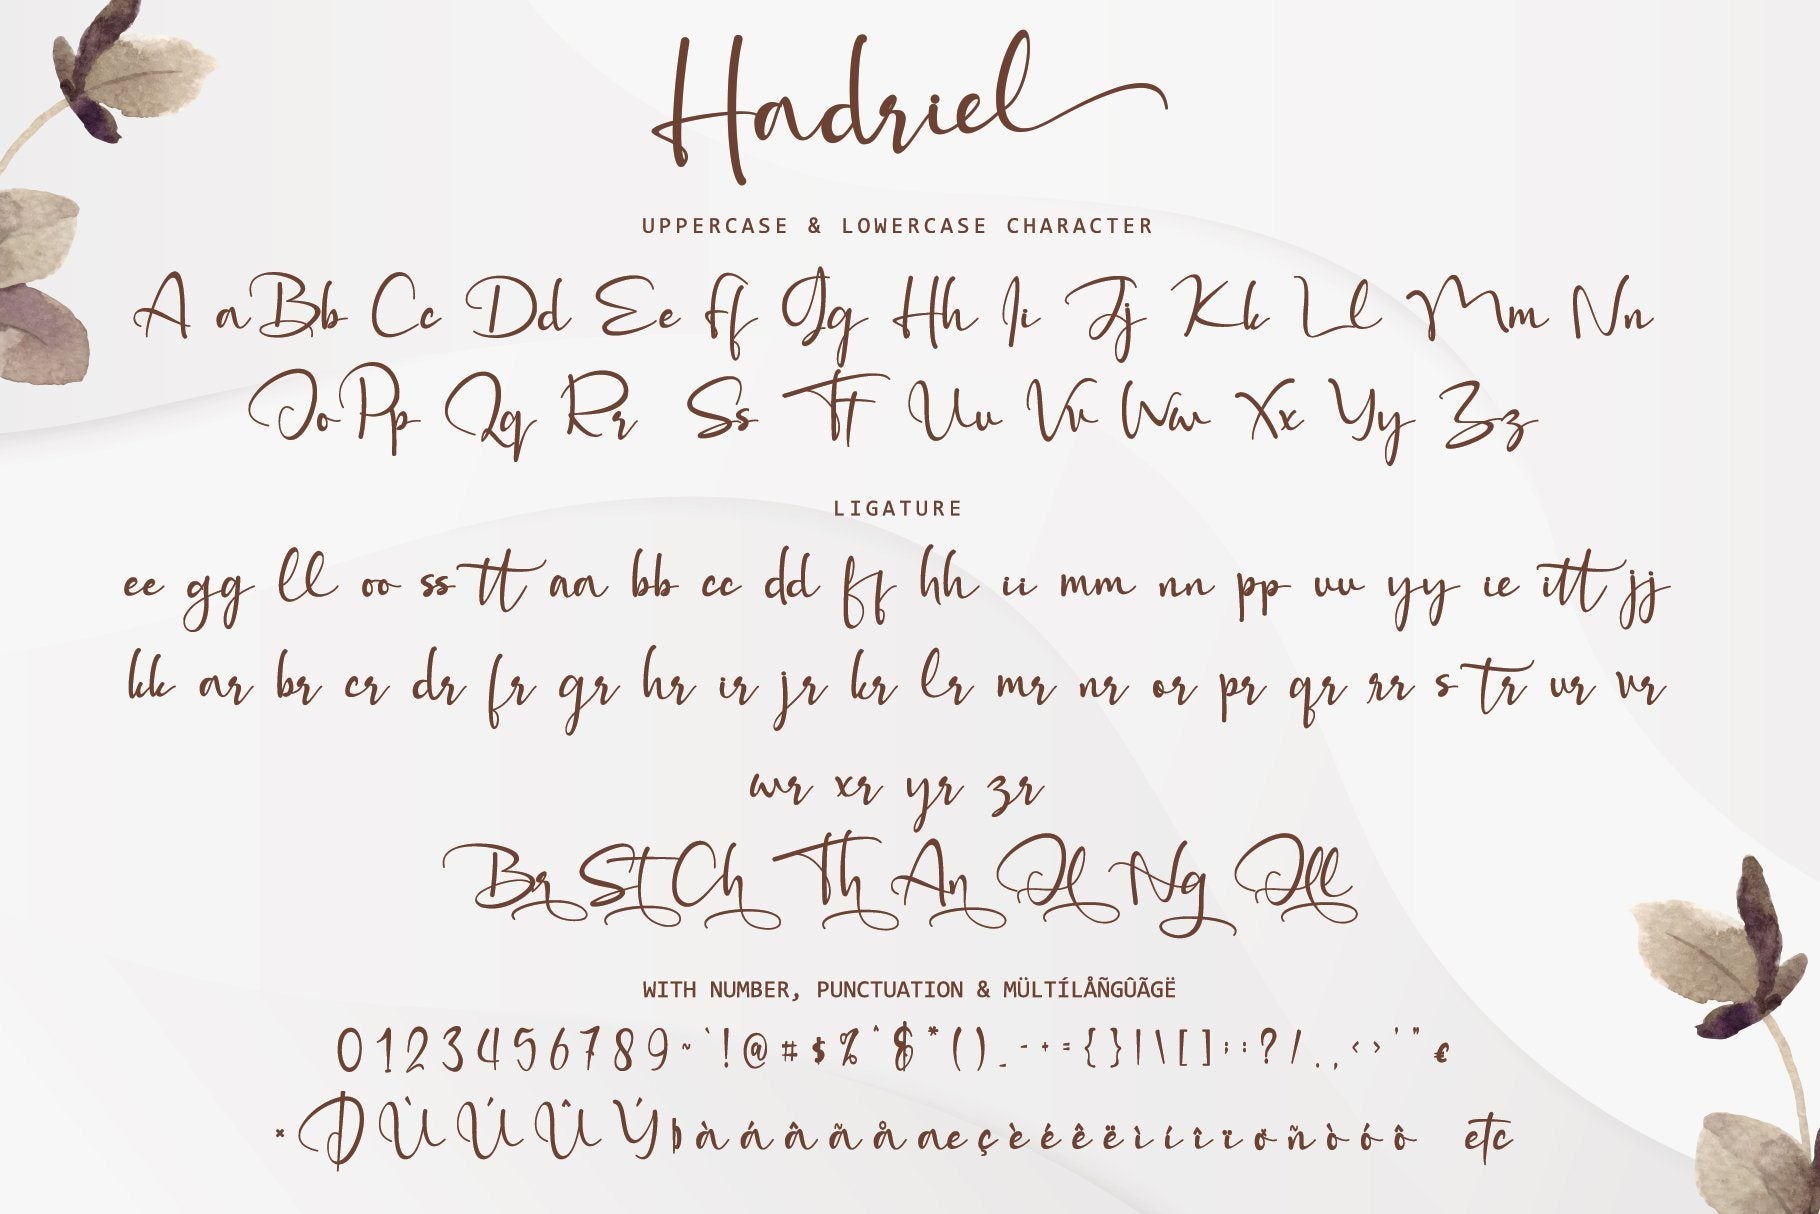 Hadriel
UPPERCASE & LOWERCASE CHARACTER
A a Bb Cc Dd Ee Ff Gg Hh Ii Jj Kk Ll Mm Nn
Oo Pp Qq Rr Ss Tt Uu Vv Ww Xx Yy Zz
LIGATURE
ee gg ll oo ss tt aa bb cc dd ff hh ii mm nn pp uu yy ie itt jj
kk ar br cr dr fr gr hr ir jr kr lr mr nr or pr qr rr s tr ur vr
wr xr yr zr
Br St Ch Th An Ol Ng Oll
WITH NUMBER, PUNCTUATION & MÜLTÍLÅÑGÛÃGË
0 1 2 3 4 5 6 7 8 9 ~ ` ! @ # $ % ^ & * ( ) _ - + = { } | \ [ ] ; : ? / . , < > ' " €
× Ð Ù Ú Û Ý þ à á â ã å æ ç è é ê ë ì í î ï ð ñ ò ó ô etc